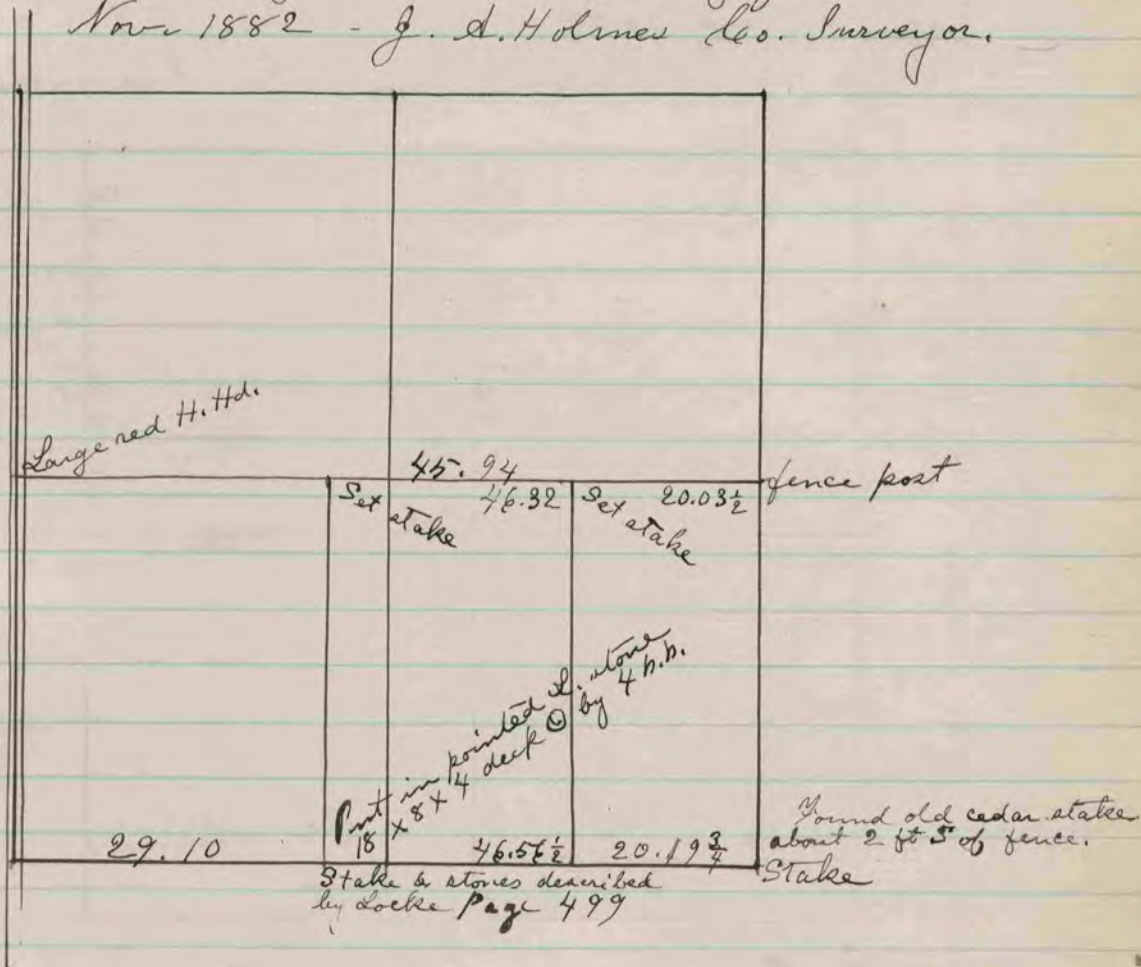 Nov. 1882 - J. A. Holmes Co. Surveyor.
Large red H. Hd.
45.94
fence post
Set stake
46.32
Set stake
20.03½
Put in pointed L. stone
18 x 8 x 4 deep by 4 h.h.
29.10
46.56½
20.19¾
Found old cedar stake
about 2 ft S of fence.
Stake
Stake & stones described
by Locke Page 499